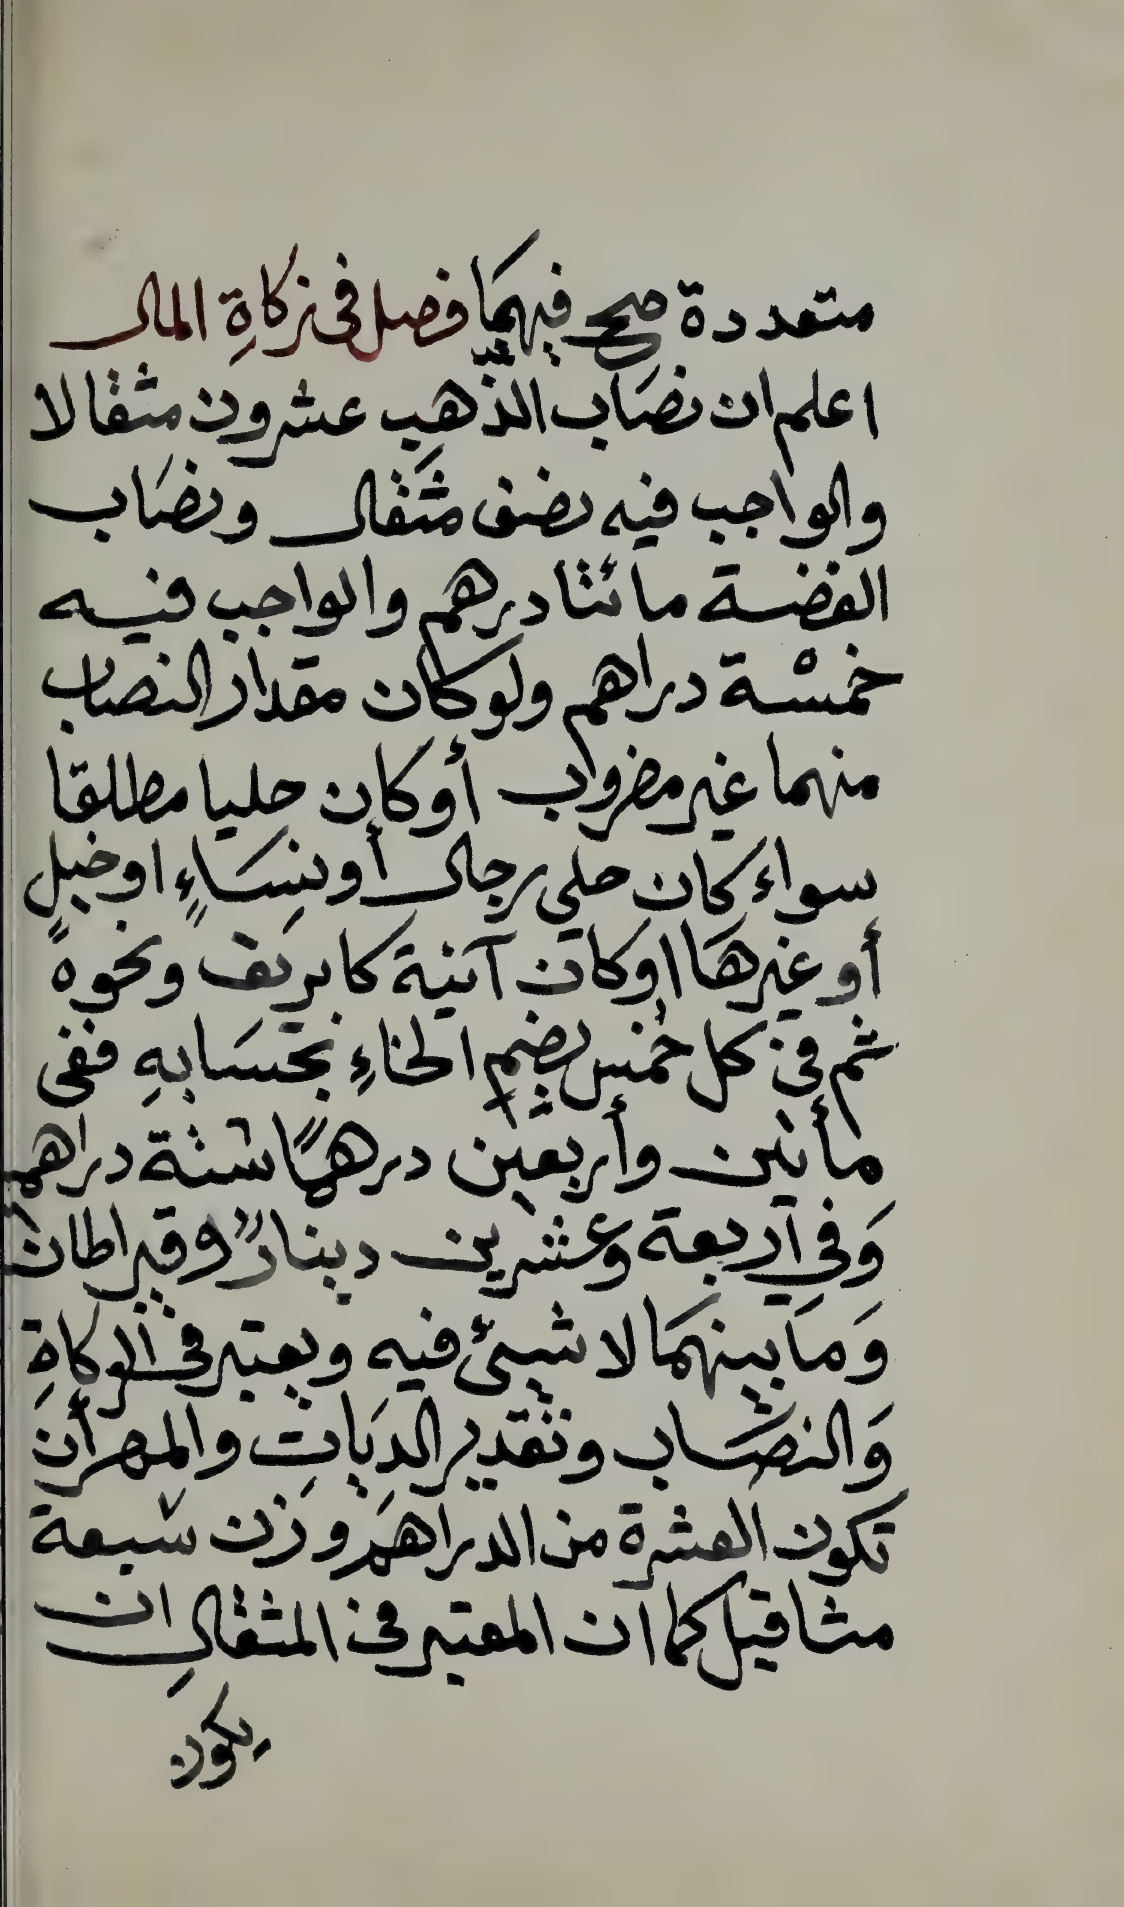 متعددة صح فيهما فصل في زكاة المال
اعلم ان نصاب الذهب عشرون مثقالا
والواجب فيه نصف مثقال ونصاب
الفضة مائتا درهم والواجب فيه
خمسة دراهم ولو كان مقدار النصاب
منهما غير مضروب أو كان حليا مطلقا
سواء كان حلي رجال أو نساءٍ او خيلٍ
أو غيرها او كان آنية كابريق ونحوه
ثم في كل خُمس بضم الخاءِ بحسابهِ ففي
مأتين وأربعين درهمًا ستة دراهم
وَفي أربعة وعشرين دينارٌ وقيراطان
وَمابينهما لا شيئ فيه ويعتبر في الزكاةِ
وَالنصَاب وتقدير الديَاتِ والمهر أن
تكون العشرة من الدراهم وزن سبعة
مثاقيل كما ان المعتبر في المثقالِ ان
يكون